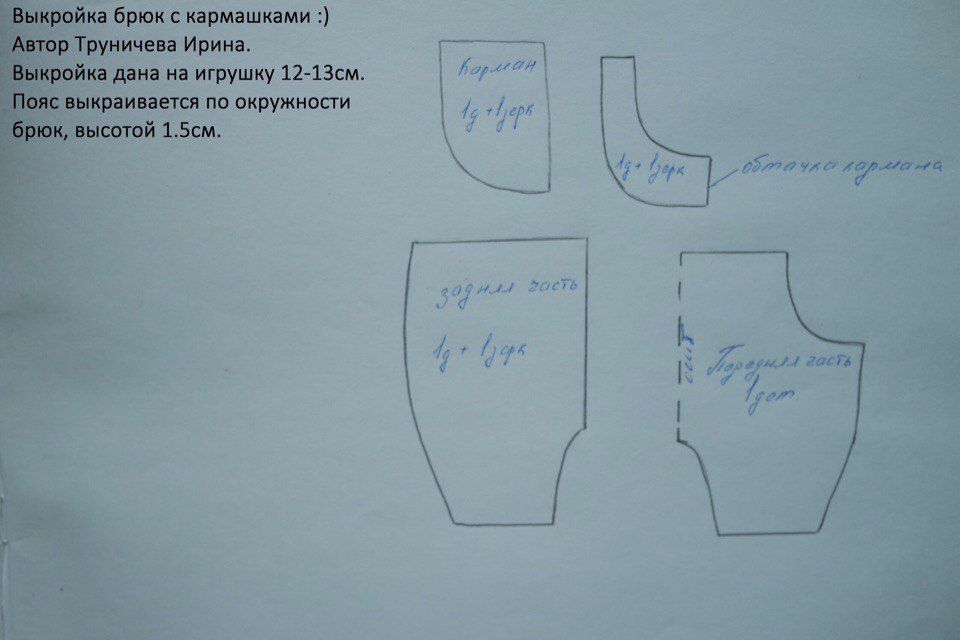 Выкройка брюк с кармашками :)
Автор Труничева Ирина.
Выкройка дана на игрушку 12-13см.
Пояс выкраивается по окружности
брюк, высотой 1.5см.
Карман
1д + 1зерк
1д + 1зерк
обтачка кармана
задняя часть
1д + 1зерк
сгиб
Передняя часть
1 дет.